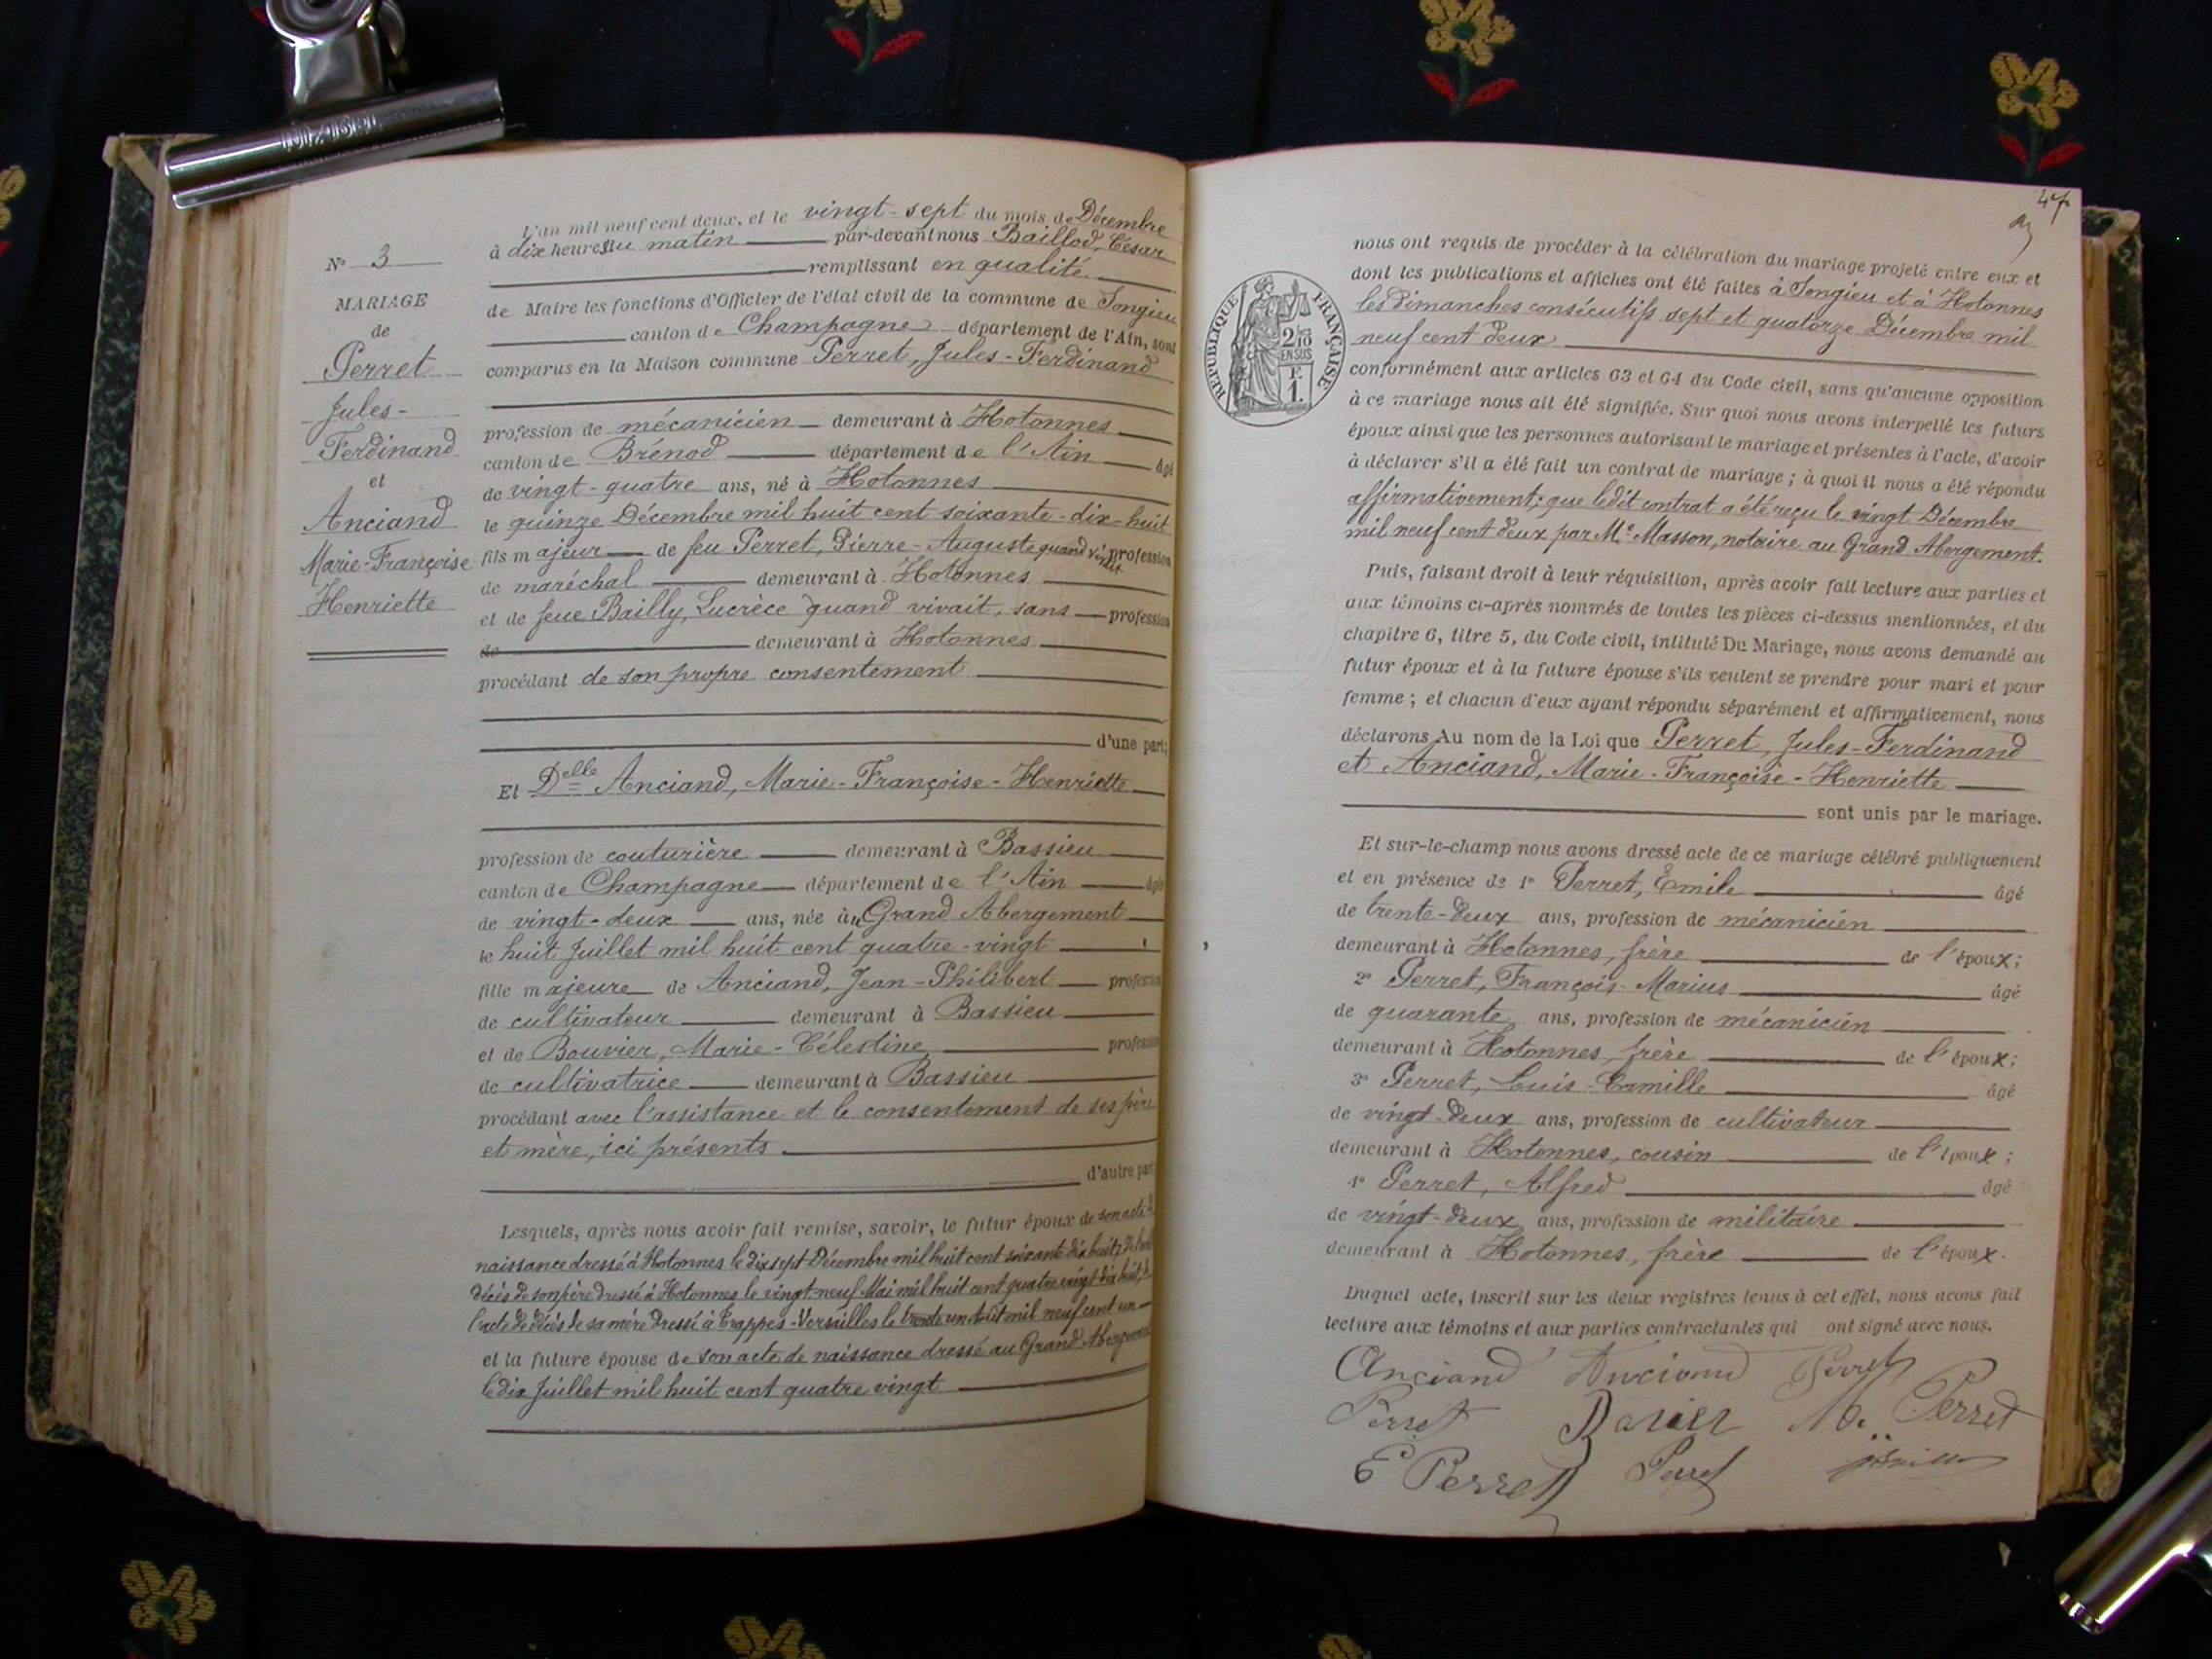 N° 3
MARIAGE
de
Perret
Jules-
Ferdinand
et
Anciand
Marie-Françoise
Henriette
L'an mil neuf cent deux, et le vingt-sept du mois de Décembre
à dix heures du matin par-devant nous Baillod, César
remplissant en qualité
de Maire les fonctions d'Officier de l'état civil de la commune de Songieu
canton de Champagne département de l'Ain, sont
comparus en la Maison commune Perret, Jules-Ferdinand
profession de mécanicien demeurant à Hotonnes
canton de Brénod département de l'Ain âgé
de vingt-quatre ans, né à Hotonnes
le quinze Décembre mil huit cent soixante-dix-huit
fils majeur de feu Perret, Pierre-Auguste quand vivait profession
de maréchal demeurant à Hotonnes
et de feue Bailly, Lucrèce quand vivait, sans profession
de demeurant à Hotonnes
procédant de son propre consentement
d'une part;
Et Delle Anciand, Marie-Françoise-Henriette
profession de couturière demeurant à Bassieu
canton de Champagne département de l'Ain âgée
de vingt-deux ans, née au Grand Abergement
le huit Juillet mil huit cent quatre-vingt
fille majeure de Anciand, Jean-Philibert profession
de cultivateur demeurant à Bassieu
et de Bouvier, Marie-Célestine profession
de cultivatrice demeurant à Bassieu
procédant avec l'assistance et le consentement de ses père
et mère, ici présents
d'autre part
Lesquels, après nous avoir fait remise, savoir, le futur époux de son acte de
naissance dressé à Hotonnes le dix sept Décembre mil huit cent soixante dix huit, de l'acte
décès de son père dressé à Hotonnes le vingt-neuf Mai mil huit cent quatre vingt dix huit, de
l'acte de décès de sa mère dressé à Trappes-Versailles le trente un Août mil neuf cent un
et la future épouse de son acte de naissance dressé au Grand Abergement
le dix Juillet mil huit cent quatre vingt
47
nous ont requis de procéder à la célébration du mariage projeté entre eux et
dont les publications et affiches ont été faites à Songieu et à Hotonnes
les dimanches consécutifs sept et quatorze Décembre mil
neuf cent deux
RÉPUBLIQUE FRANÇAISE
2/10
EN SUS
F.
1.
conformément aux articles 63 et 64 du Code civil, sans qu'aucune opposition
à ce mariage nous ait été signifiée. Sur quoi nous avons interpellé les futurs
époux ainsi que les personnes autorisant le mariage et présentes à l'acte, d'avoir
à déclarer s'il a été fait un contrat de mariage; à quoi il nous a été répondu
affirmativement; que ledit contrat a été reçu le vingt Décembre
mil neuf cent deux par Me Masson, notaire au Grand Abergement.
Puis, faisant droit à leur réquisition, après avoir fait lecture aux parties et
aux témoins ci-après nommés de toutes les pièces ci-dessus mentionnées, et du
chapitre 6, titre 5, du Code civil, intitulé Du Mariage, nous avons demandé au
futur époux et à la future épouse s'ils veulent se prendre pour mari et pour
femme; et chacun d'eux ayant répondu séparément et affirmativement, nous
déclarons Au nom de la Loi que Perret, Jules-Ferdinand
et Anciand, Marie-Françoise-Henriette
sont unis par le mariage.
Et sur-le-champ nous avons dressé acte de ce mariage célébré publiquement
et en présence de 1° Perret, Emile âgé
de trente-deux ans, profession de mécanicien
demeurant à Hotonnes, frère de l'époux;
2° Perret, François-Marius âgé
de quarante ans, profession de mécanicien
demeurant à Hotonnes, frère de l'époux;
3° Perret, Louis-Camille âgé
de vingt-deux ans, profession de cultivateur
demeurant à Hotonnes, cousin de l'époux;
4° Perret, Alfred âgé
de vingt-deux ans, profession de militaire
demeurant à Hotonnes, frère de l'époux.
Duquel acte, inscrit sur les deux registres tenus à cet effet, nous avons fait
lecture aux témoins et aux parties contractantes qui ont signé avec nous.
Anciand Anciand Perret
Perret M. Perret
E Perret Perret